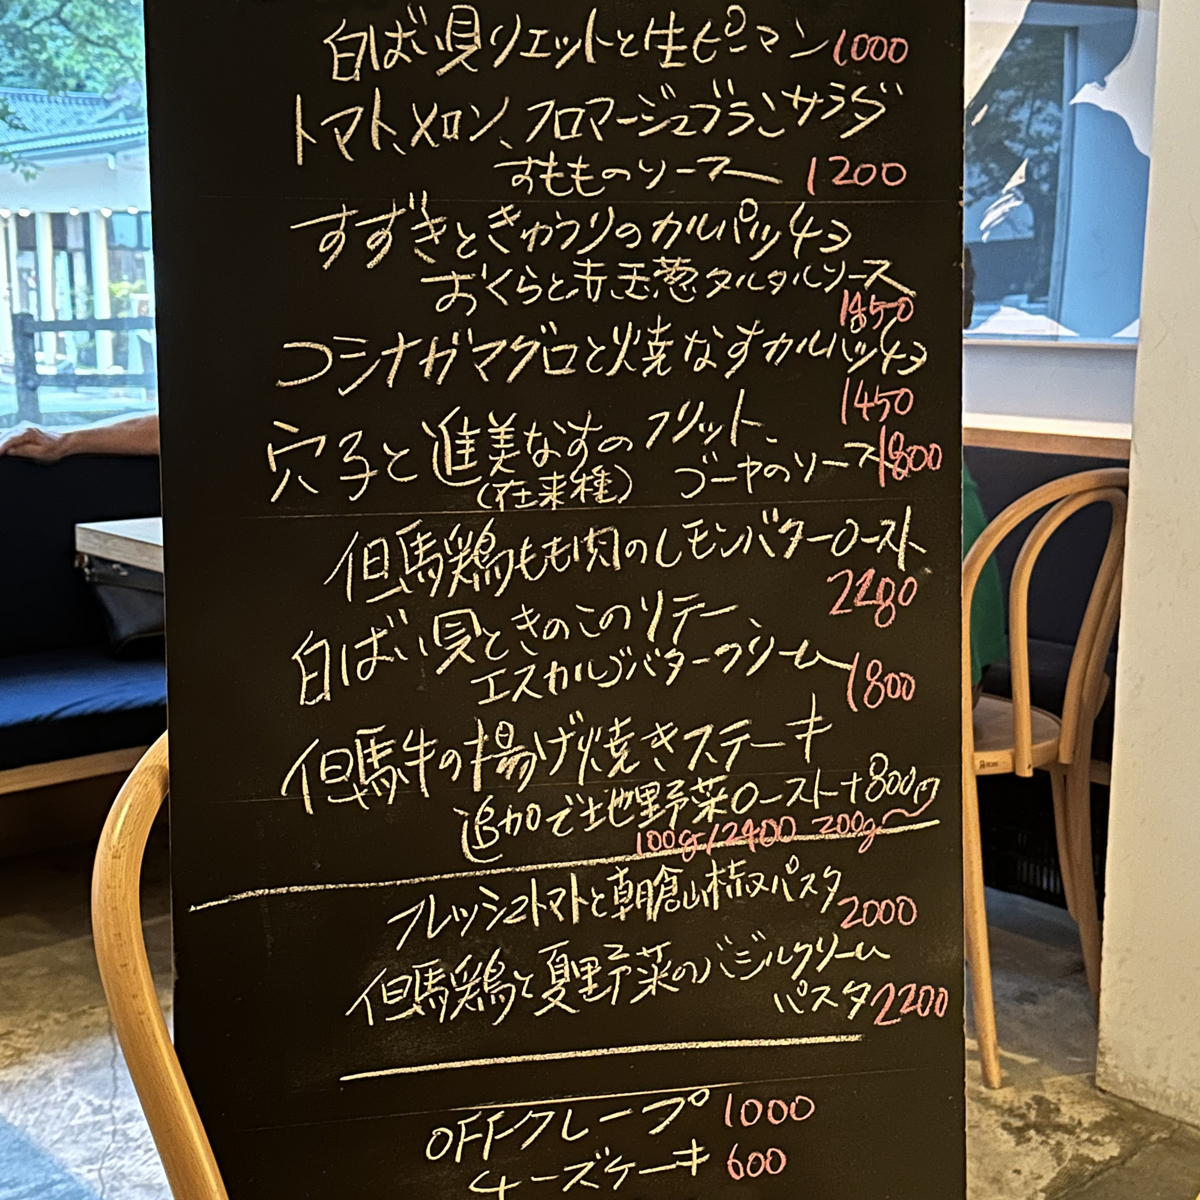 白ばい貝リエットと生ピーマン 1000
トマト、メロン、フロマージュブランサラダ
すもものソース 1200
すずきときゅうりのカルパッチョ
おくらと赤玉葱タルタルソース
1450
コシナガマグロと焼なすカルパッチョ
1450
穴子と進美なすのフリット、
(在来種) ゴーヤのソース 1800
但馬鶏もも肉のレモンバターロースト
2280
白ばい貝ときのこのソテー
エスカルゴバタークリーム 1800
但馬牛の揚げ焼きステーキ
追加で土地野菜ロースト+800円
100g/2400 200g〜
フレッシュトマトと朝倉山椒パスタ
2000
但馬鶏と夏野菜のバジルクリーム
パスタ 2200
OFFクレープ 1000
チーズケーキ 600